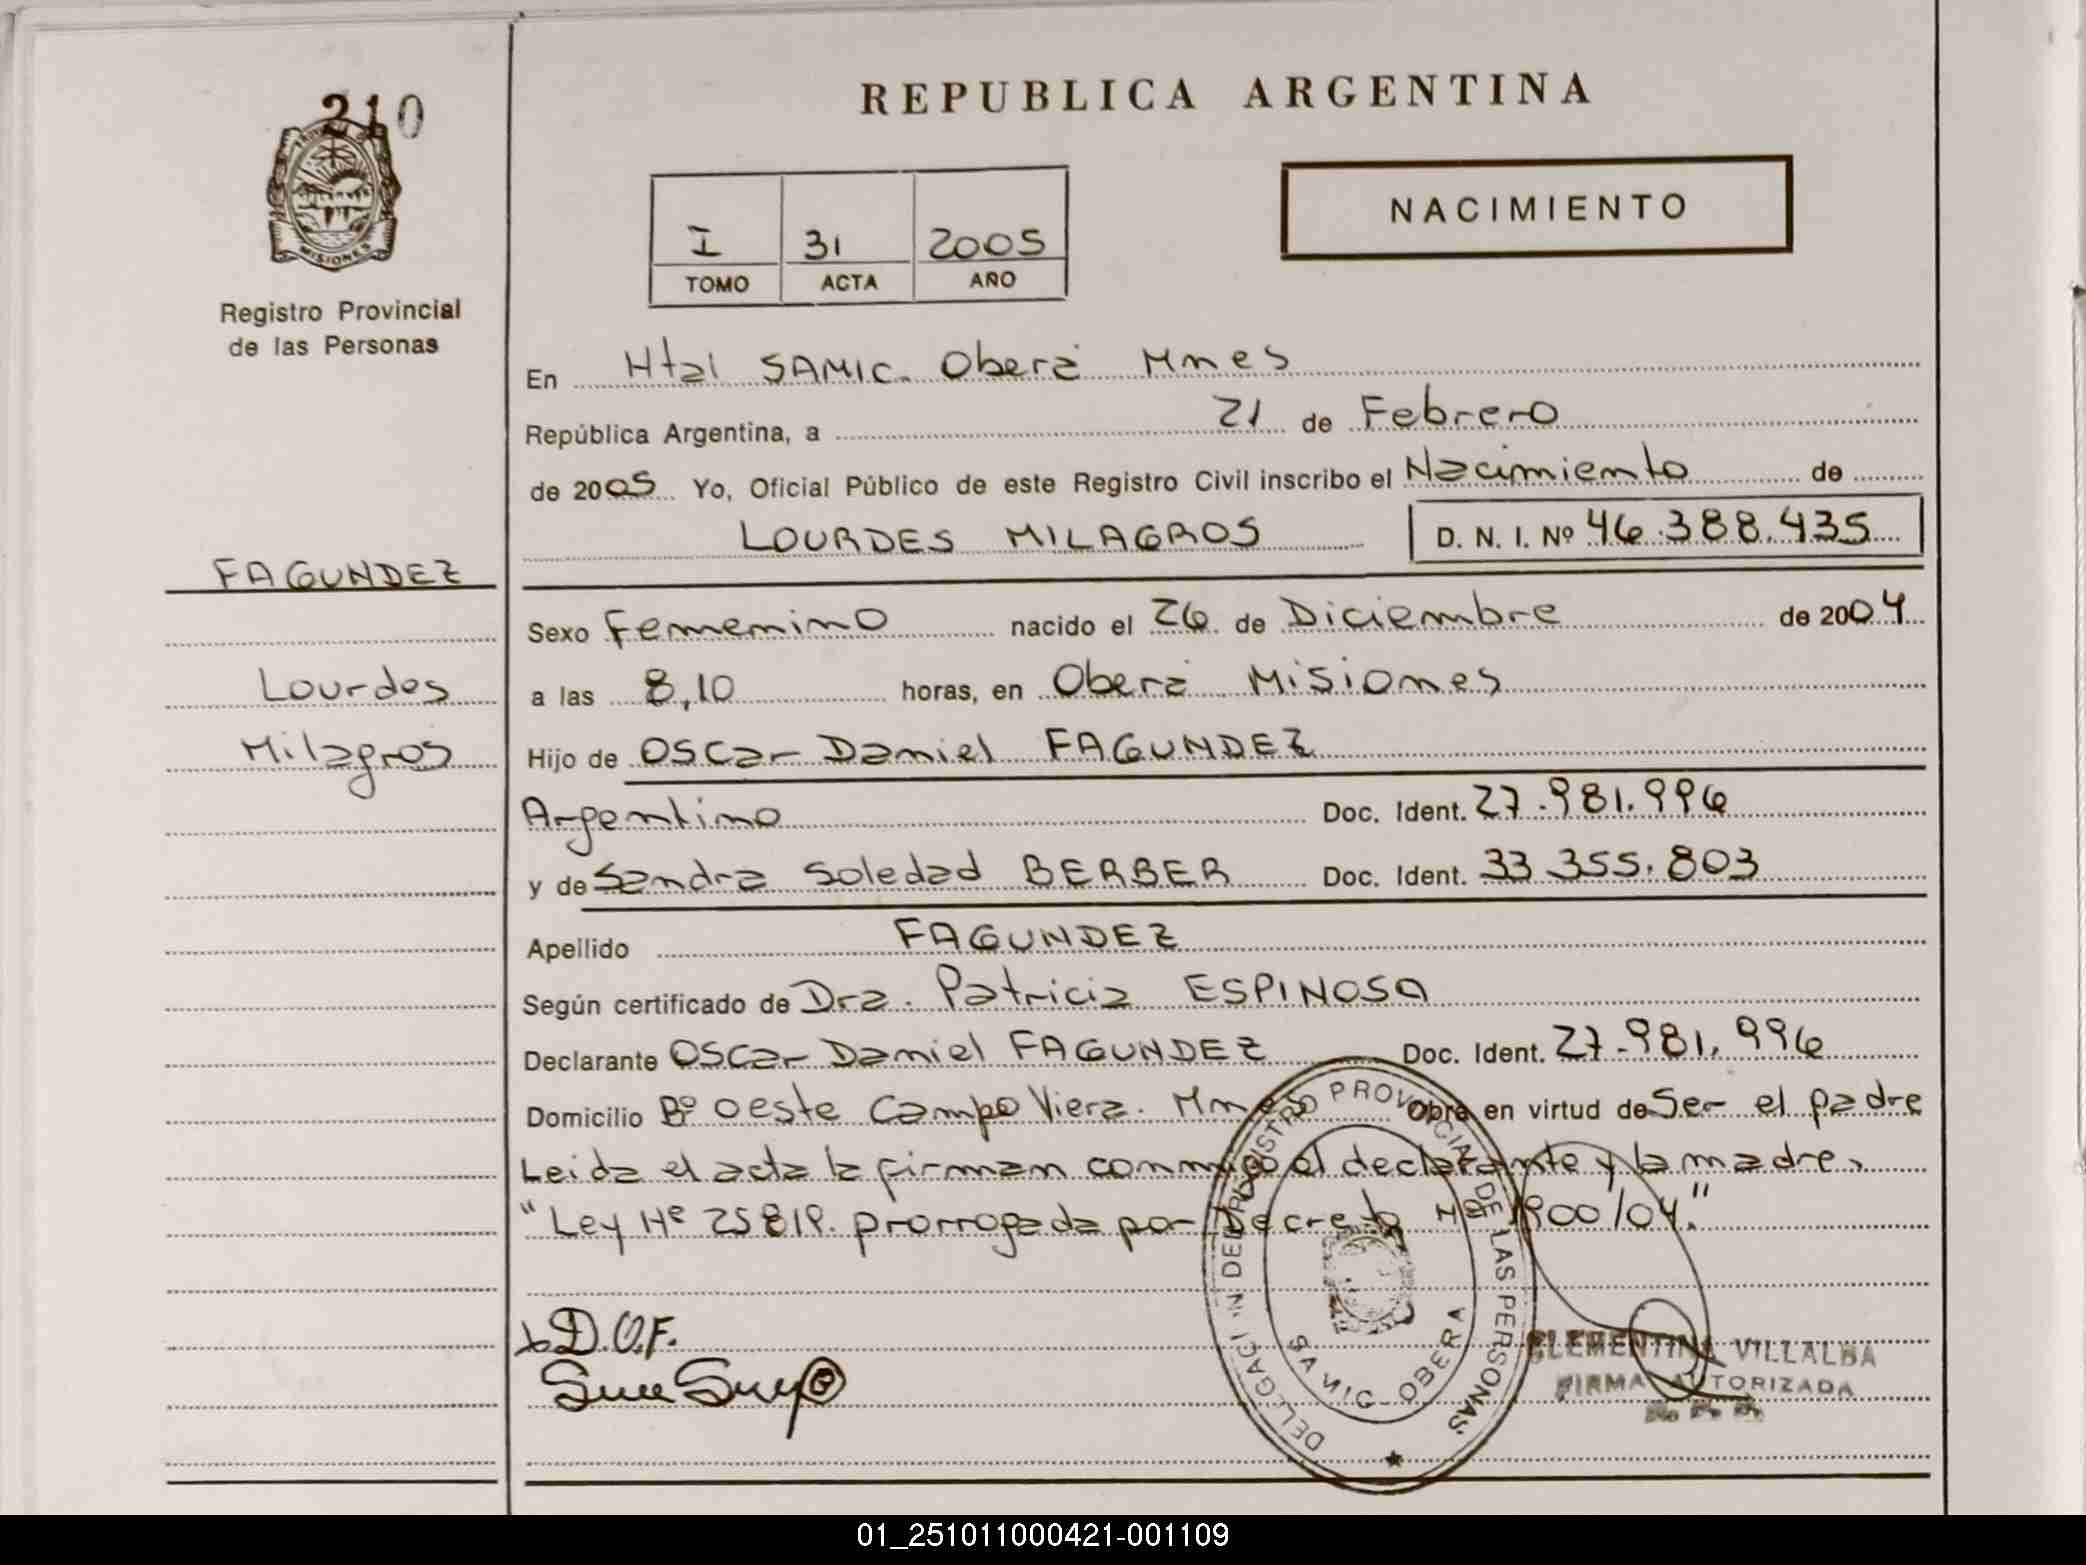 210
MISIONES
Registro Provincial
de las Personas
FAGUNDEZ
Lourdes
Milagros
REPUBLICA ARGENTINA
I 31 2005
TOMO ACTA AÑO
NACIMIENTO
En Htal SAMIC. Oberá Mnes
República Argentina, a 21 de Febrero
de 2005 Yo, Oficial Público de este Registro Civil inscribo el Nacimiento de
LOURDES MILAGROS D. N. I. Nº 46.388.435
Sexo Femenino nacido el 26 de Diciembre de 2004
a las 8,10 horas, en Oberá Misiones
Hijo de Oscar Daniel FAGUNDEZ
Argentino Doc. Ident. 27.981.996
y de Sandra Soledad BERBER Doc. Ident. 33.355.803
Apellido FAGUNDEZ
Según certificado de Dra. Patricia ESPINOSA
Declarante Oscar Daniel FAGUNDEZ Doc. Ident. 27.981.996
Domicilio Bº oeste Campo Viera. Mnes Obra en virtud de Ser el padre
Leida el acta la firman conmigo el declarante y la madre,
"Ley Nº 25819. prorrogada por Decreto Nº 1900/04."
D.O.F.
DELGACI'N DEL REGISTRO PROVINCIAL DE LAS PERSONAS
SAMIC - OBERA
CLEMENTINA VILLALBA
FIRMA AUTORIZADA
01_251011000421-001109